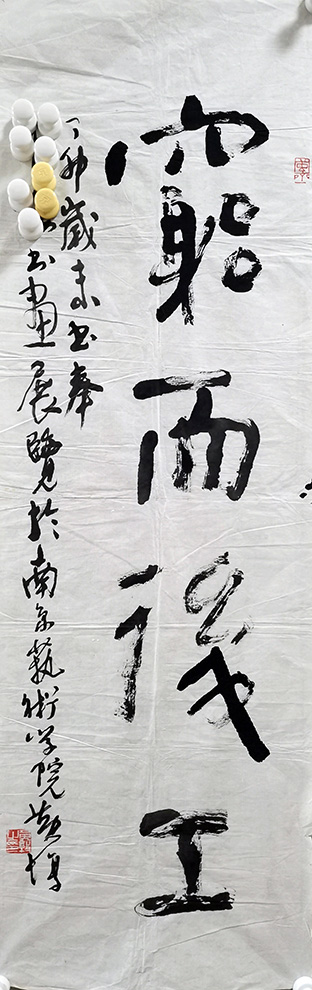 窮而後工
丁卯歲末書奉
書畫展覽於南京藝術学院